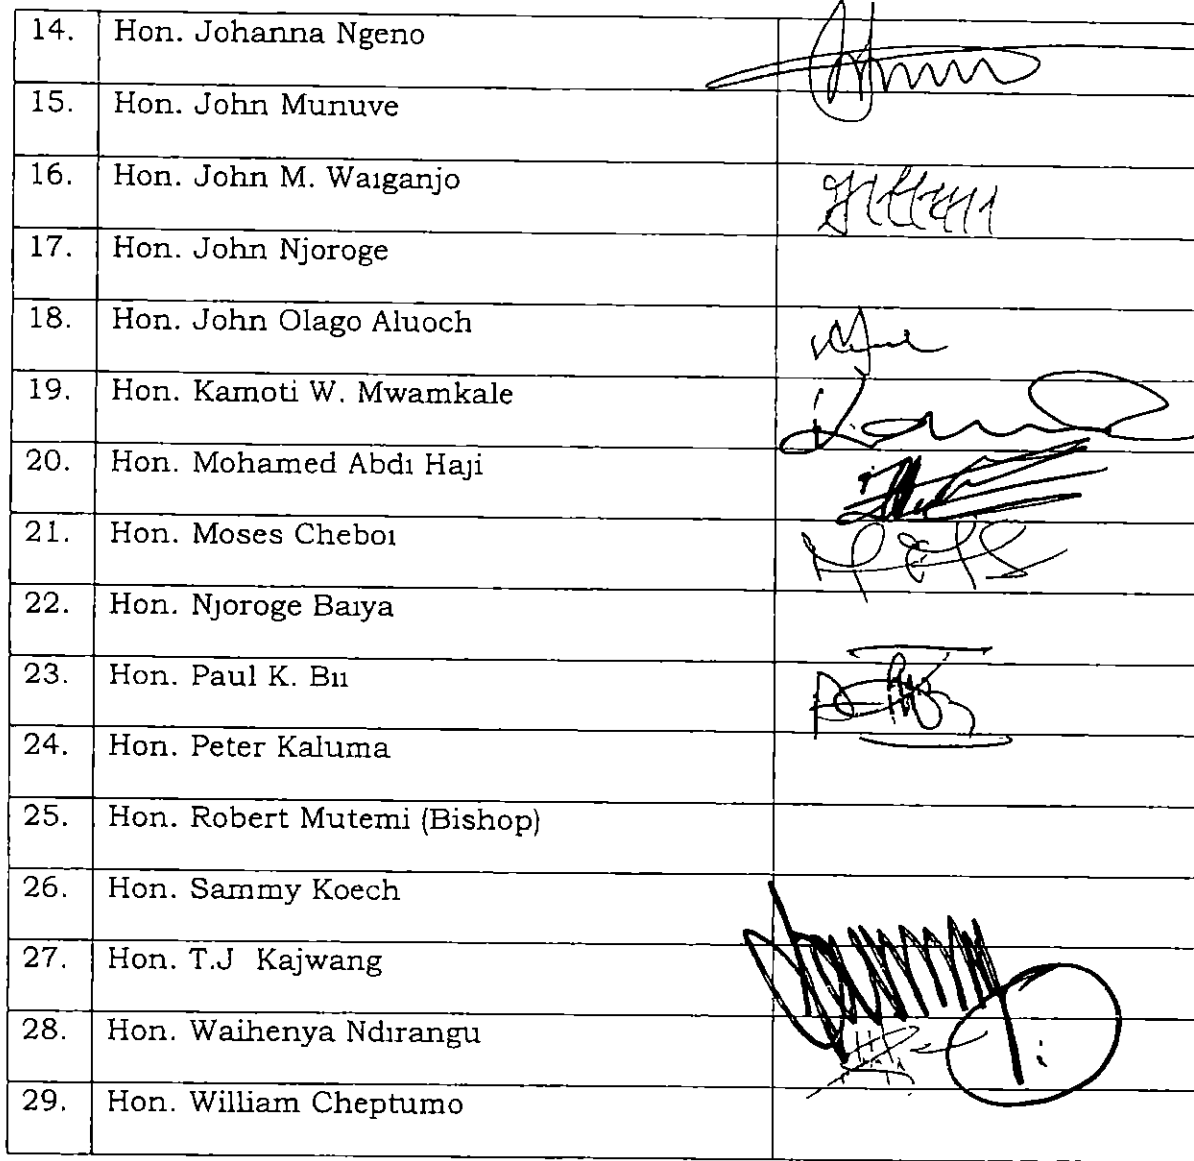 14. Hon. Johanna Ngeno
15. Hon. John Munuve
16. Hon. John M. Waıganjo
17. Hon. John Njoroge
18. Hon. John Olago Aluoch
19. Hon. Kamoti W. Mwamkale
20. Hon. Mohamed Abdı Haji
21. Hon. Moses Cheboı
22. Hon. Njoroge Baıya
23. Hon. Paul K. Bıı
24. Hon. Peter Kaluma
25. Hon. Robert Mutemi (Bishop)
26. Hon. Sammy Koech
27. Hon. T.J Kajwang
28. Hon. Waihenya Ndırangu
29. Hon. William Cheptumo